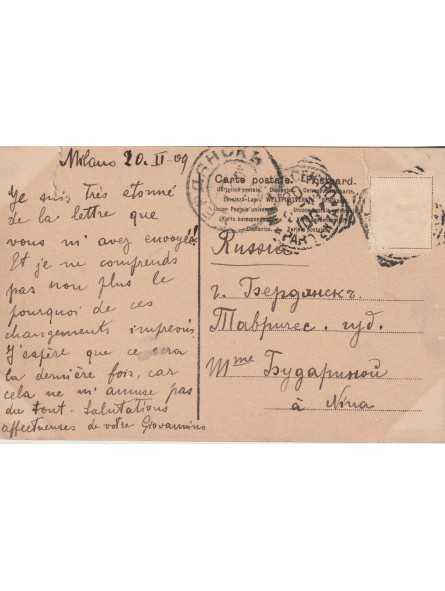 Milano 20. II - 09
Je suis très etonné
de la lettre que
vous m'avez envoyée!
Et je ne comprends
pas non plus le
pourquoi de ces
changements imprevus.
J'espère que ce sera
la dernière fois, car
cela ne m'amuse pas
du tout. Salutations
affectueuses de votre Giovannino
Carte postale. Postcard.
WELTPOSTVEREIN
БЕРДЯНСКЪ
MILANO
PARTENZA
Russia
г. Бердянскъ
Тавричес. губ.
Mme Будариной
à Nina